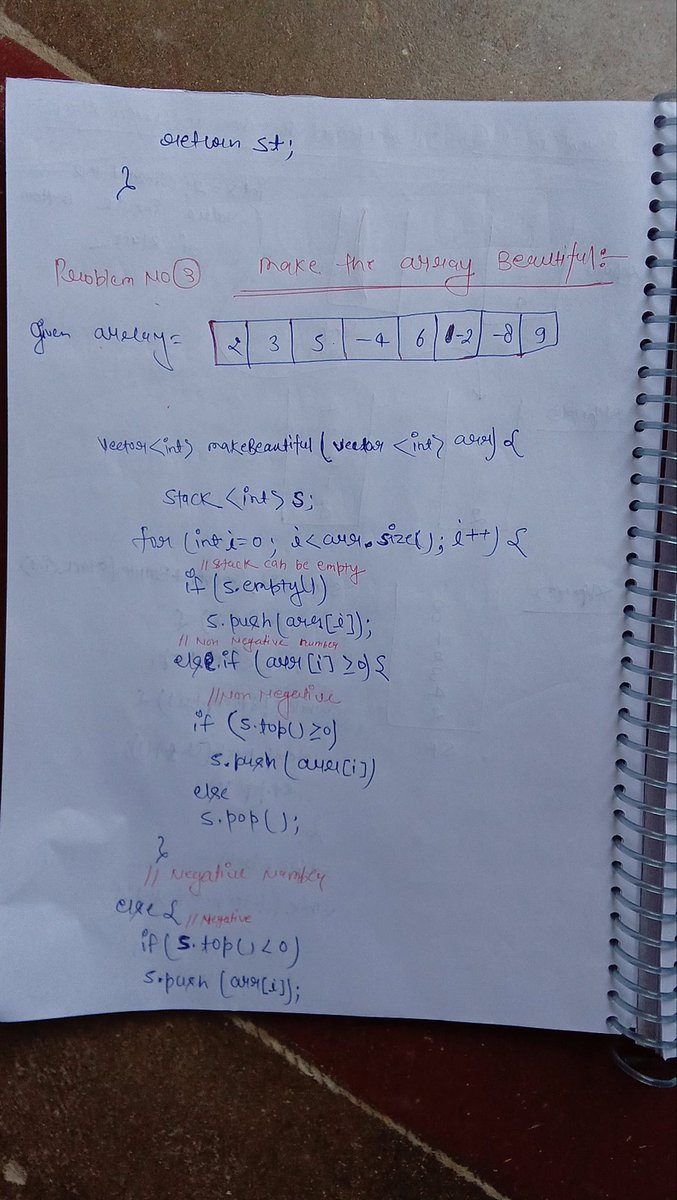 return st;
}
Problem No 3 make the array Beautiful:-
Given array= 2 3 5 -4 6 -2 -8 9
vector<int> makeBeautiful(vector<int> arr){
stack<int> s;
for(int i=0; i<arr.size(); i++){
//stack can be empty
if (s.empty())
s.push(arr[i]);
// Non Negative Number
else if (arr[i] ≥0){
//Non Negative
if (s.top() ≥0)
s.push(arr[i])
else
s.pop();
}
// Negative Number
else{ //Negative
if(s.top()<0)
s.push(arr[i]);